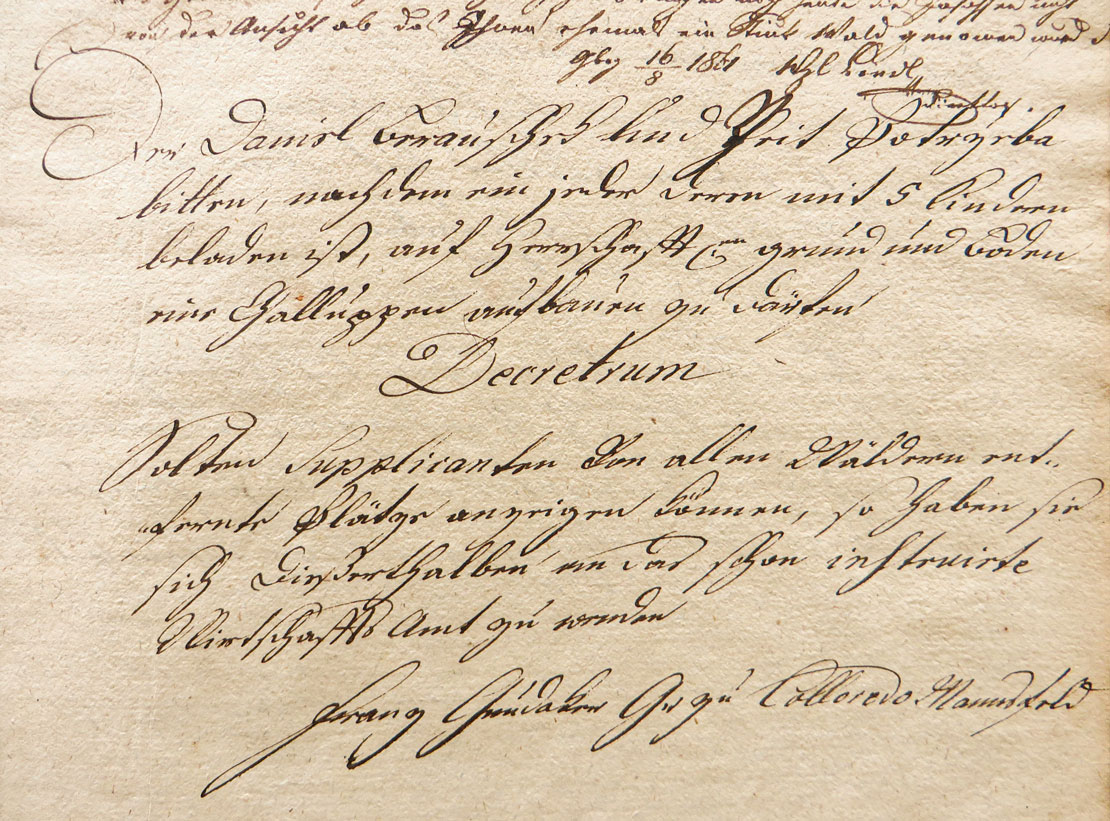 von der Ansicht ob das Ihnen ehemals ein Stück Wald genommen wurde
16/8 1861
Der Daniel Berauschek Und Veit Potrzeba
bitten, nachdem ein jeder deren mit 5 Kindern
beladen ist, auf Herrschafftl:en grund und Boden
eine Challuppen aufbauen zu därfen
Decretrum
Solten Supplicanten Von allen Wäldern ent„
„fernte Plätze anzeigen Können, so haben sie
sich dießerthalben an das schon instruirte
Wirtschaffts Amt zu wenden
Franz Gundaker Gr zu Colloredo Mannsfeld